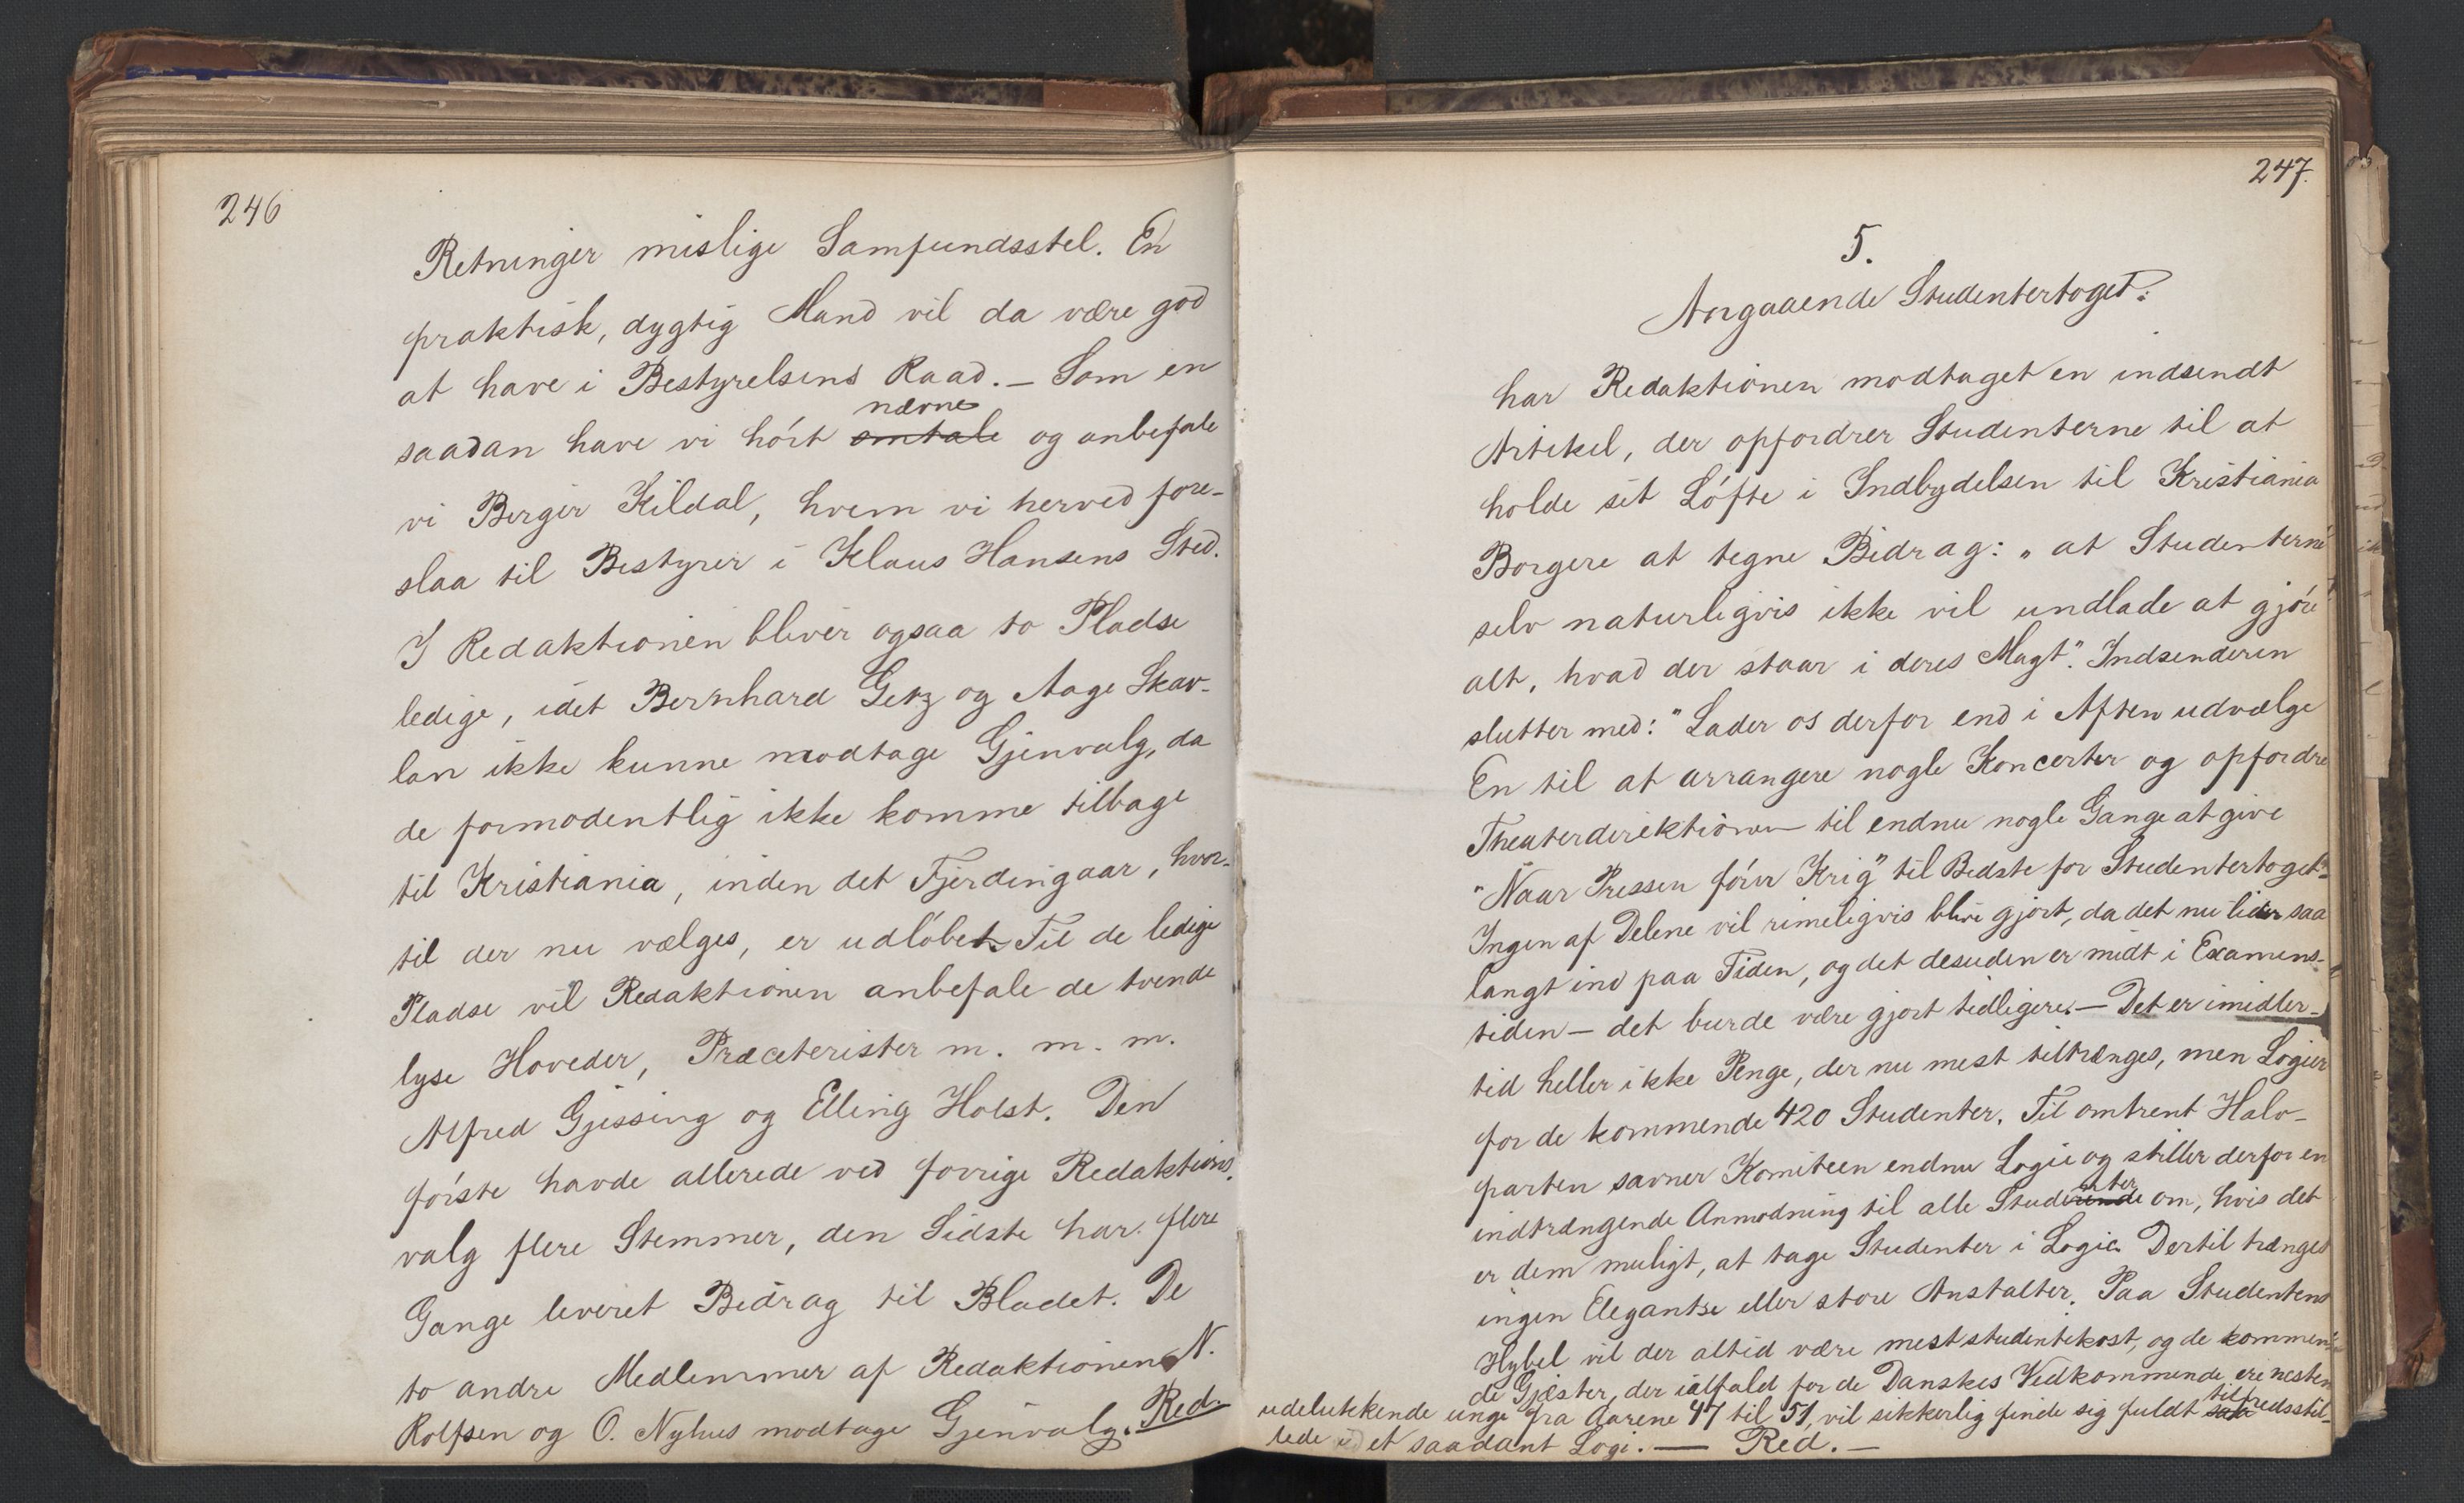 246
Retninger mislige Samfundsstel. En
praktisk, dygtig Mand vil da være god
at have i Bestyrelsens Raad. – Som en
nævne
saadan have vi hórt omtale og anbefale
vi Birger Kildal, hvem vi herved fore-
slaa til Bestyrer i Klaus Hansens Sted.
I Redaktionen bliver ogsaa to Pladse
ledige, idet Bernhard Getz og Aage Skav-
lan ikke kunne modtage Gjenvalg, da
de formodentlig ikke komme tilbage
til Kristiania, inden det Fjerdingaar, hvor-
til der nu vælges, er udlóbet. Til de ledige
Pladse vil Redaktionen anbefale de tvende
lyse Hoveder, Præceterister m. m. m.
Alfred Gjessing og Elling Holst. Den
fórste havde allerede ved forrige Redaktions-
valg flere Stemmer, den Sidste har flere
Gange leveret Bidrag til Bladet. De
to andre Medlemmer af Redaktionen N.
Rolfsen og O. Nyhus modtage Gjenvalg. Red.
247.
5.
Angaaende Studentertoget:
har Redaktionen modtaget en indsendt
Artikel, der opfordrer Studenterne til at
holde sit Lófte i Indbydelsen til Kristiania
Borgere at tegne Bidrag: „at Studenterne
selv naturligvis ikke vil undlade at gjóre
alt, hvad der staar i deres Magt". Indsenderen
slutter med: "Lader os derfor end i Aften udvælge
En til at arrangere nogle Koncerter og opfordre
Theaterdirektionen til endnu nogle Gange at give
"Naar Pressen fórer Krig" til Bedste for Studentertoget"
Ingen af Delene vil rimeligvis blive gjort, da det nu lider saa
langt ind paa Tiden, og det desuden er midt i Examens-
tiden – det burde være gjort tidligere. – Det er imidler-
tid heller ikke Penge, der nu mest tiltrænges, men Logier
for de kommende 420 Studenter. Til omtrent Halv-
parten savner Komiteen endnu Logie og stiller derfor en
nter
indtrængende Anmodning til alle Studerende om, hvis det
er dem muligt, at tage Studenter i Logie. Dertil trænges
ingen Elegantse eller store Anstalter. Paa Studentens
Hybel vil der altid være mest studentikost, og de kommen-
de Gjæster, der ialfald for de Danskes Vedkommende ere næsten
til
udelukkende unge fra Aarene 47 til 51, vil sikkerlig finde sig fuldt saa redsstil-
lede i et saadant Logi. — Red. –